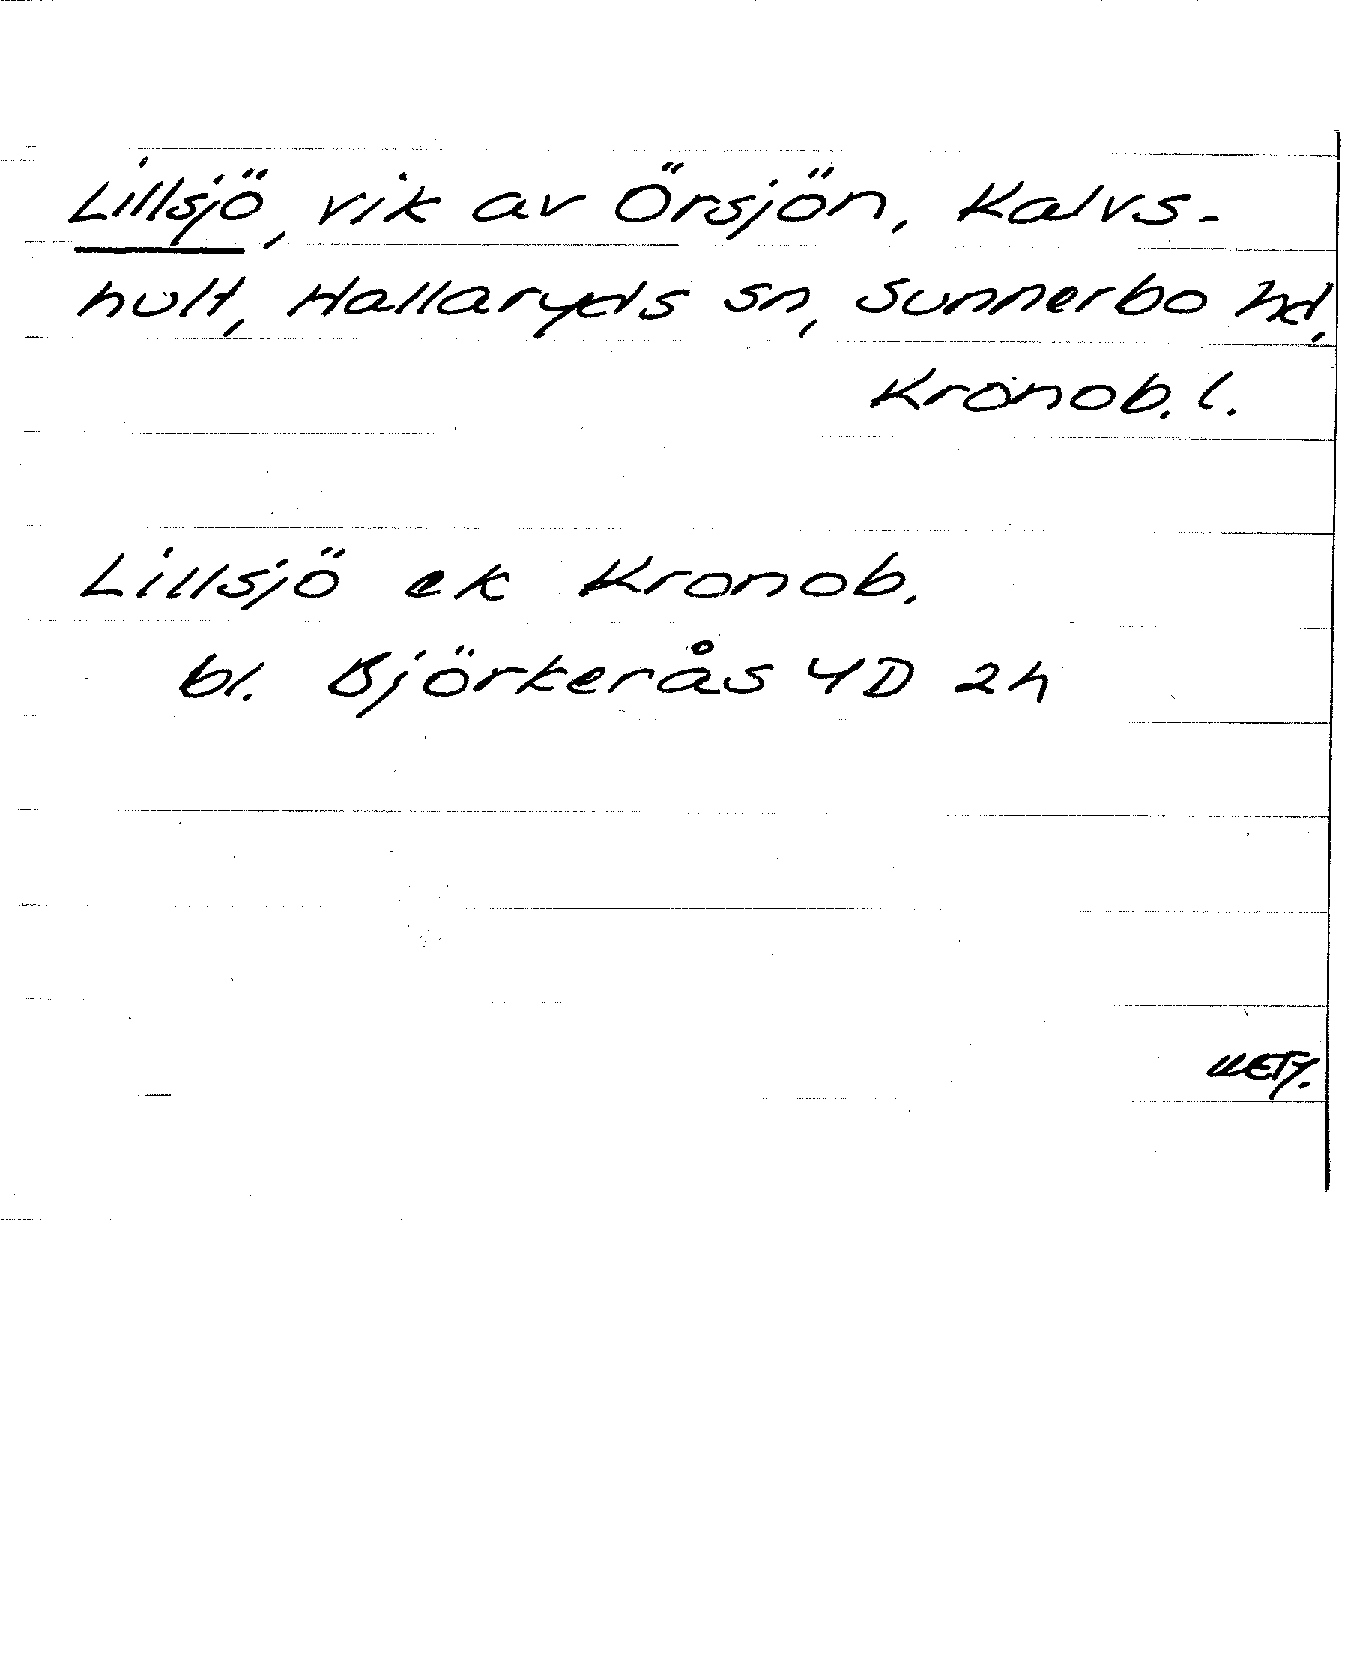 Lillsjö, vik av Örsjön, Kalvs-
hult, Hallaryds sn, Sunnerbo hd,
Kronob. l.
Lillsjö ek Kronob.
bl. Björkerås 4D 2h